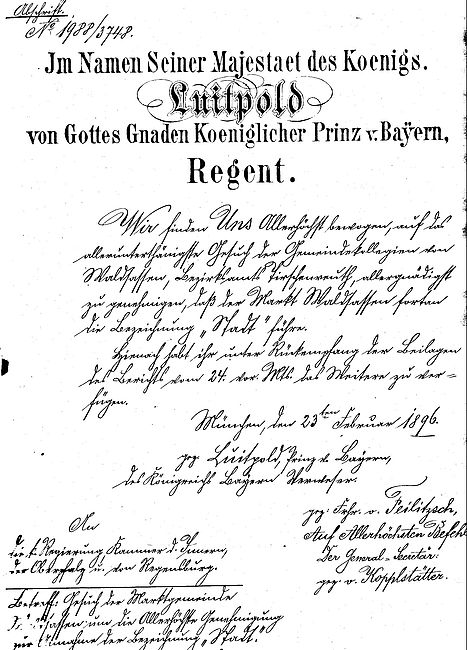 Abschrift.
No 1988/3748.
Jm Namen Seiner Majestaet des Koenigs.
Luitpold
von Gottes Gnaden Koeniglicher Prinz v. Bayern,
Regent.
Wir finden Uns Allerhöchst bewogen, auf das
allerunterthänigste Gesuch der Gemeindekollegien von
Waldsassen, Bezirksamts Tirschenreuth, allergnädigst
zu genehmigen, daß der Markt Waldsassen fortan
die Bezeichnung „Stadt" führe.
Hienach habt ihr unter Rückempfang der Beilagen
des Berichts vom 24. vor. Mts. das Weitere zu ver-
fügen.
München, den 23ten Februar 1896.
gez. Luitpold, Prinz v. Bayern,
des Königreichs Bayern Verweser.
gez. Frhr. v. Feilitzsch,
Auf Allerhöchsten Befehl
Der General-Secretär:
gez. v. Kopplstätter.
An
die k. Regierung, Kammer d. Innern,
der Oberpfalz u. von Regensburg.
Betreff: Gesuch der Marktgemeinde
um die Allerhöchste Genehmigung
zur Annahme der Bezeichnung „Stadt".